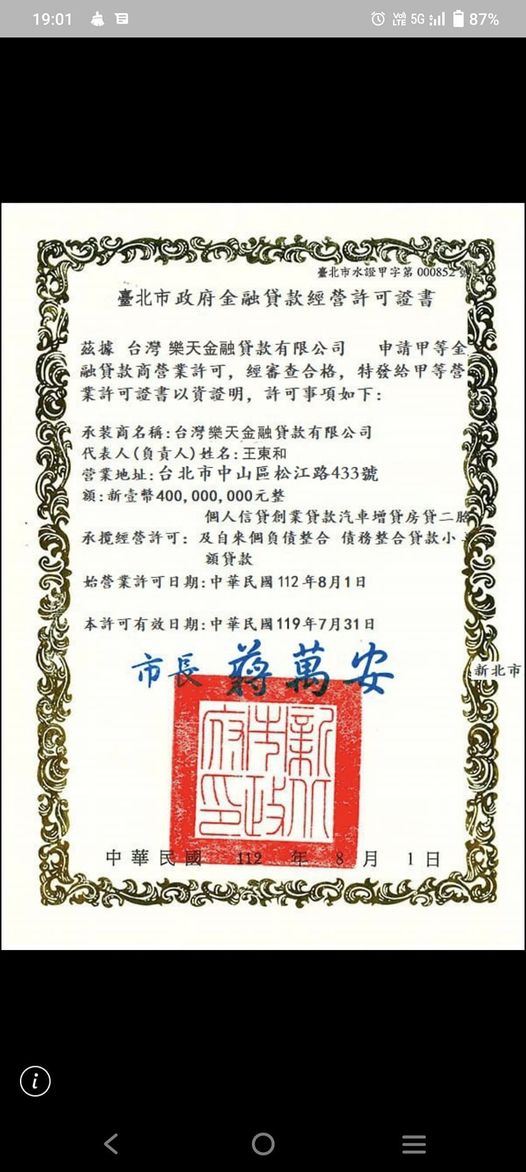 19:01
VoLTE 5G 87%
臺北市水證甲字第 000852 號
臺北市政府金融貸款經營許可證書
茲據 台灣 樂天金融貸款有限公司 申請甲等金
融貸款商營業許可，經審查合格，特發給甲等營
業許可證書以資證明，許可事項如下：
承裝商名稱:台灣樂天金融貸款有限公司
代表人(負責人)姓名:王東和
營業地址:台北市中山區松江路433號
額:新壹幣400,000,000元整
個人信貸創業貸款汽車增貸房貸二胎
承攬經營許可: 及自來個負債整合 債務整合貸款小
額貸款
始營業許可日期:中華民國112年8月1日
本許可有效日期:中華民國119年7月31日
市長 蔣萬安
新北市
新北市政府印
中華民國 112 年 8 月 1 日